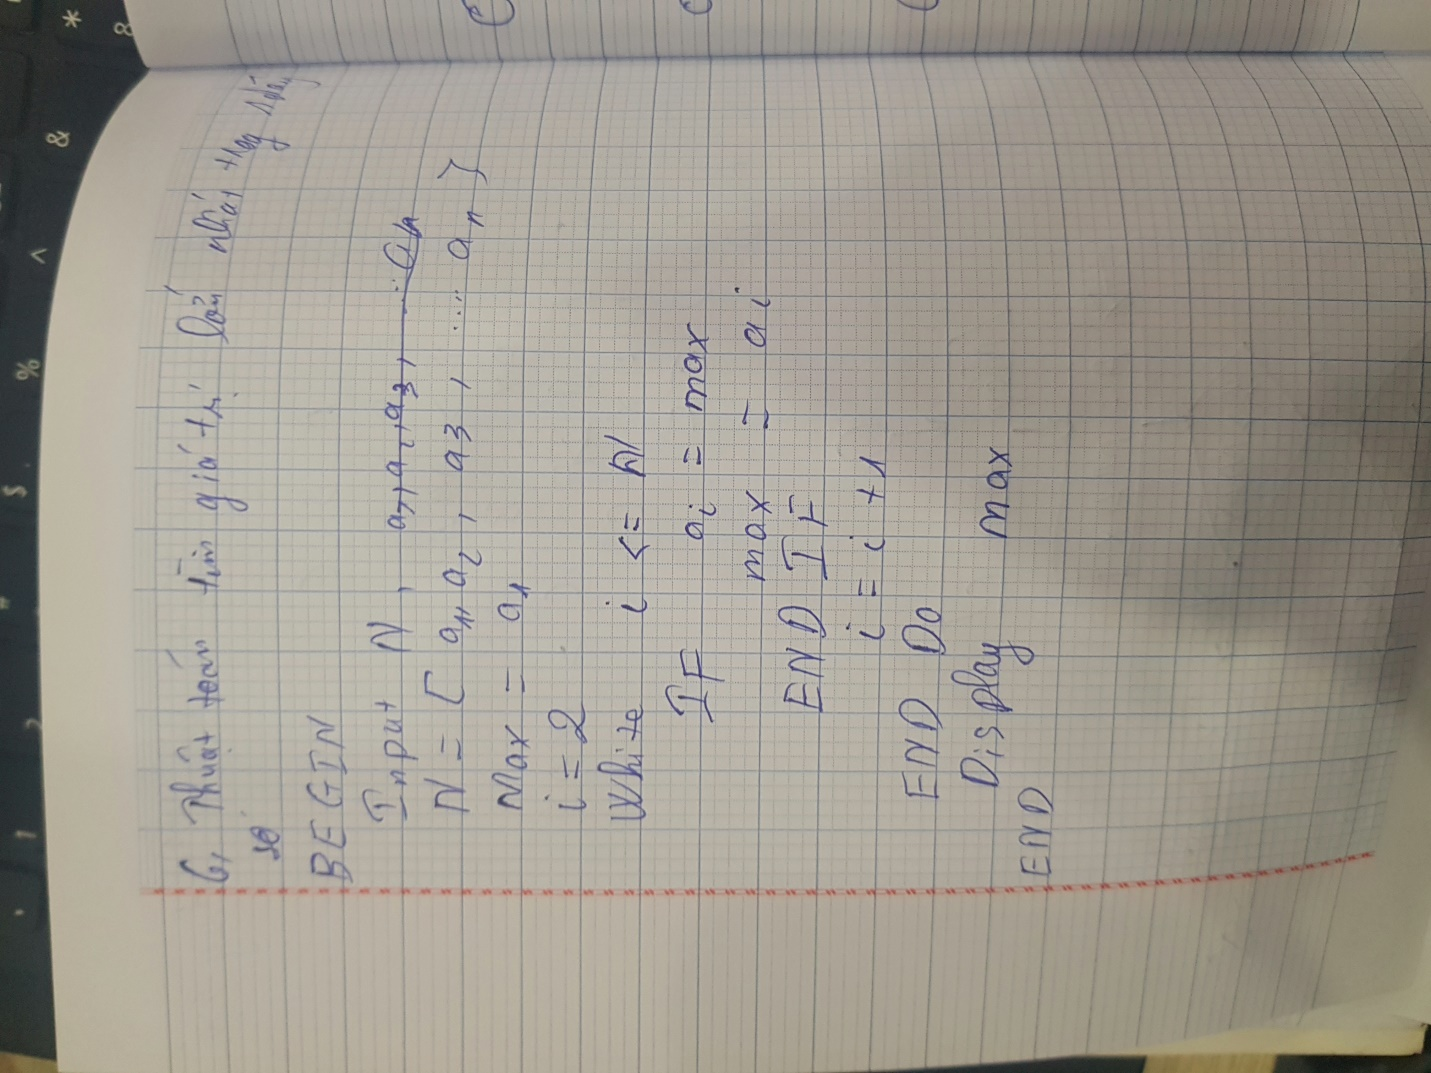 6, Thuật toán tìm giá trị lớn nhất trong 1 dãy
số
BEGIN
Input N, a1, a2, a3, ... an
N = [ a1, a2, a3, .... an }
Max = a1
i = 2
White i <= N
IF ai = max
max = ai
END IF
i = i + 1
END Do
Display max
END